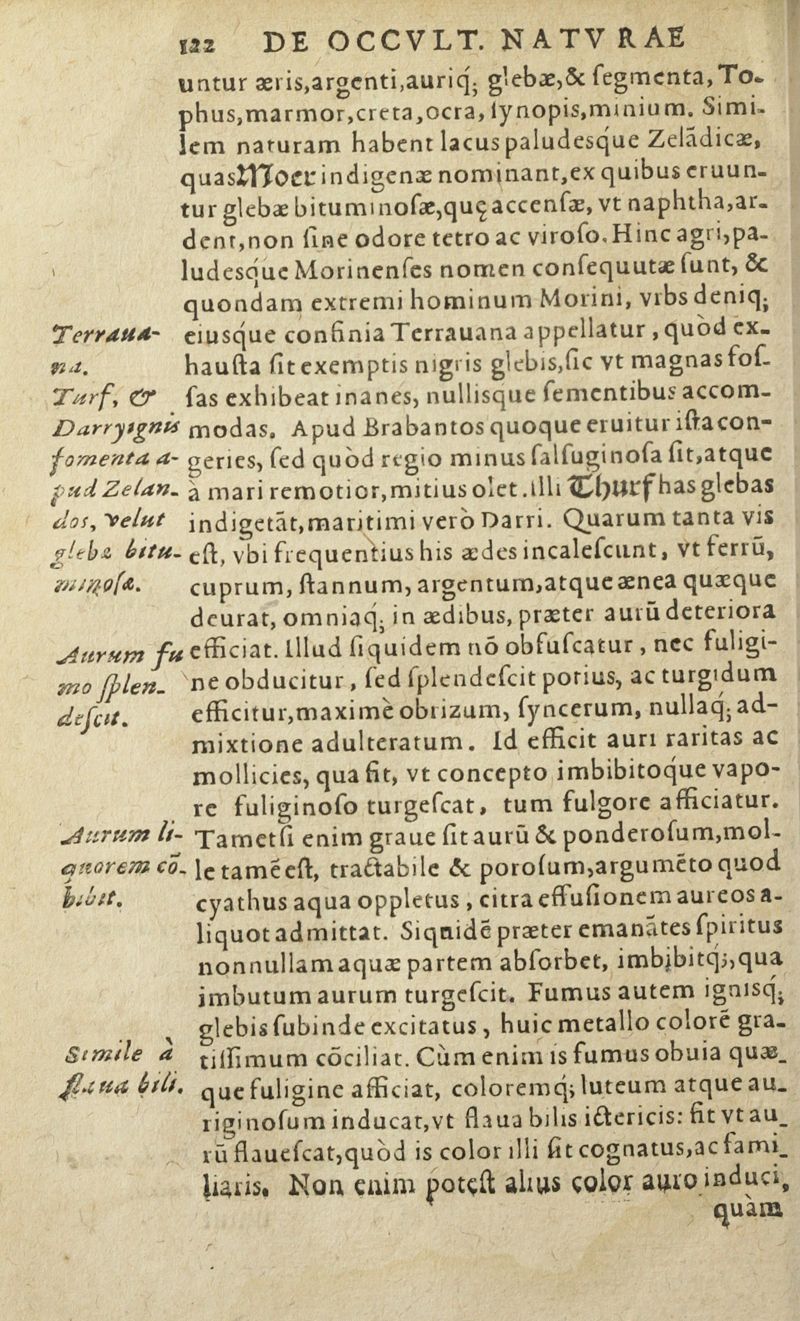 122 DE OCCVLT. NATVRAE
untur æris,argenti,auriq; glebæ,& ſegmenta,To-
phus,marmor,creta,ocra,ſynopis,minium. Simi-
lem naturam habent lacus paludesque Zelãdicæ,
quas Moer indigenæ nominant,ex quibus eruun-
tur glebæ bituminoſæ,quę accenſæ, vt naphtha,ar-
dent,non ſine odore tetro ac viroſo. Hinc agri,pa-
ludesque Morinenſes nomen conſequutæ ſunt, &
quondam extremi hominum Morini, vrbs deniq;
Terraua- eiusque confinia Terrauana appellatur, quòd ex-
na. hauſta ſit exemptis nigris glebis,ſic vt magnas foſ-
Turf, & ſas exhibeat inanes, nullisque ſementibus accom-
Darry ignis modas. Apud Brabantos quoque eruitur iſta con-
fomenta a- geries, ſed quòd regio minus ſalſuginoſa ſit,atque
pud Zelan- à mari remotior,mitius olet. Illi Thurf has glebas
dos, velut indigetãt,maritimi verò Darri. Quarum tanta vis
glebæ bitu- eſt, vbi frequentius his ædes incaleſcunt, vt ferrũ,
minoſæ. cuprum, ſtannum, argentum,atque ænea quæque
deurat, omniaq; in ædibus, præter aurũ deteriora
Aurum fu efficiat. Illud ſiquidem nõ obfuſcatur, nec fuligi-
mo ſplen- ne obducitur, ſed ſplendeſcit potius, ac turgidum
deſcit. efficitur,maximè obrizum, ſyncerum, nullaq; ad-
mixtione adulteratum. Id efficit auri raritas ac
mollicies, qua fit, vt concepto imbibitoque vapo-
re fuliginoſo turgeſcat, tum fulgore afficiatur.
Aurum li- Tametſi enim graue ſit aurũ & ponderoſum,mol-
quorem cō- le tamẽ eſt, tractabile & poroſum,argumẽto quod
bibit. cyathus aqua oppletus, citra effuſionem aureos a-
liquot admittat. Siquidẽ præter emanãtes ſpiritus
nonnullam aquæ partem abſorbet, imbibitq;,qua
imbutum aurum turgeſcit. Fumus autem ignisq;
glebis ſubinde excitatus, huic metallo colorẽ gra-
Simile à tiſſimum cõciliat. Cùm enim is fumus obuia quæ-
flaua bili. que fuligine afficiat, coloremq; luteum atque au-
riginoſum inducat,vt flaua bilis ictericis: fit vt au-
rũ flaueſcat,quòd is color illi ſit cognatus,ac fami-
liaris. Non enim poteſt alius color auro induci,
quàm